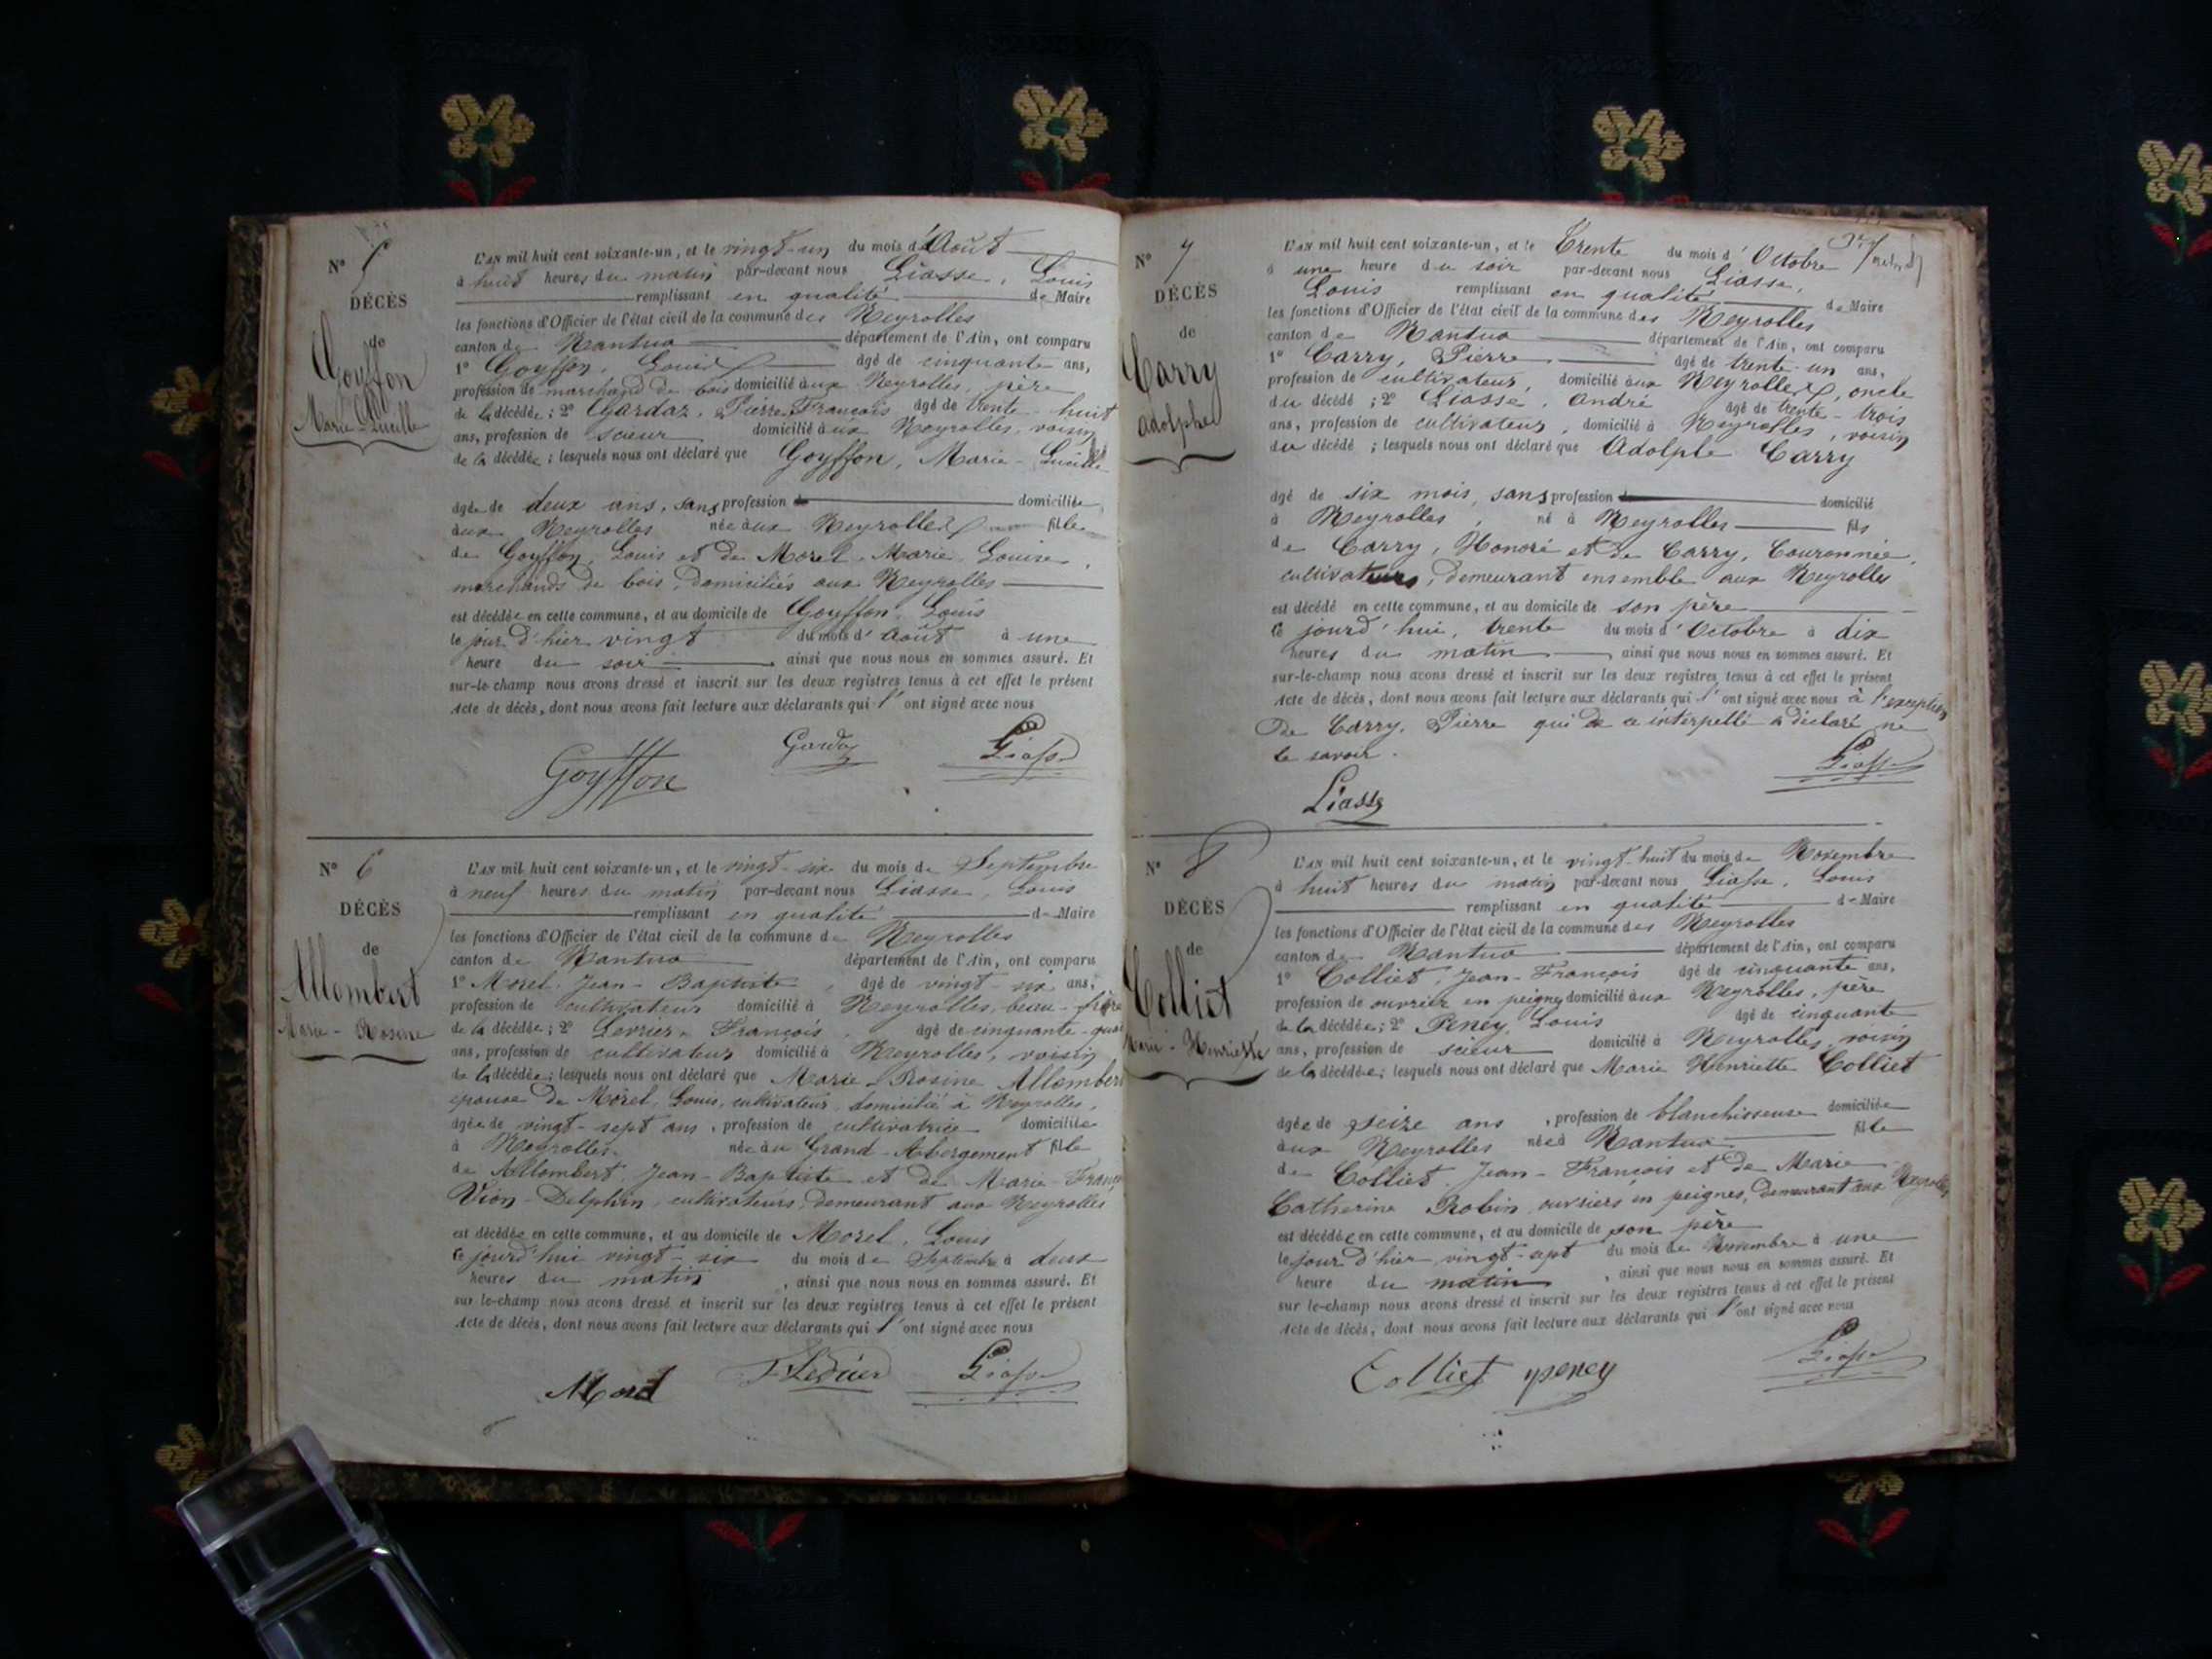 N° 5
DÉCÈS
de
Goyffon
Marie Lucille
L'AN mil huit cent soixante-un, et le vingt-un du mois d'Août
à huit heures du matin par-devant nous Liasse, Louis
remplissant en qualité de Maire
les fonctions d'Officier de l'état civil de la commune des Neyrolles
canton de Nantua département de l'Ain, ont comparu
1° Goyffon, Louis âgé de cinquante ans,
profession de marchand de bois domicilié aux Neyrolles, père
de la décédée; 2° Gardaz, Pierre François âgé de trente-huit
ans, profession de scieur domicilié aux Neyrolles, voisin
de la décédée; lesquels nous ont déclaré que Goyffon, Marie-Lucille
âgée de deux ans, sans profession domiciliée
aux Neyrolles née aux Neyrolles fille
de Goyffon, Louis et de Morel, Marie Louise,
marchands de bois, domiciliés aux Neyrolles
est décédée en cette commune, et au domicile de Goyffon, Louis
le jour d'hier vingt du mois d'août à une
heure du soir, ainsi que nous nous en sommes assuré. Et
sur-le-champ nous avons dressé et inscrit sur les deux registres tenus à cet effet le présent
Acte de décès, dont nous avons fait lecture aux déclarants qui l'ont signé avec nous
Goyffon Gardaz Liasse
N° 6
DÉCÈS
de
Allombert
Marie-Rosine
L'AN mil huit cent soixante-un, et le vingt-six du mois de Septembre
à neuf heures du matin par-devant nous Liasse, Louis
remplissant en qualité de Maire
les fonctions d'Officier de l'état civil de la commune de Neyrolles
canton de Nantua département de l'Ain, ont comparu
1° Morel, Jean-Baptiste, âgé de vingt-six ans,
profession de cultivateur domicilié à Neyrolles, beau-frère
de la décédée; 2° Levrier, François, âgé de cinquante-
ans, profession de cultivateur domicilié à Neyrolles, voisin
de la décédée; lesquels nous ont déclaré que Marie-Rosine Allombert
épouse de Morel, Louis, cultivateur domicilié à Neyrolles,
âgée de vingt-sept ans, profession de cultivatrice domiciliée
à Neyrolles, née au Grand-Abergement fille
de Allombert, Jean-Baptiste et de Marie-
Vion-Delphin, cultivateurs, demeurant aux Neyrolles
est décédée en cette commune, et au domicile de Morel, Louis
ce jourd'hui vingt-six du mois de Septembre à deux
heures du matin, ainsi que nous nous en sommes assuré. Et
sur le-champ nous avons dressé et inscrit sur les deux registres tenus à cet effet le présent
Acte de décès, dont nous avons fait lecture aux déclarants qui l'ont signé avec nous
Morel Liasse
N° 7
DÉCÈS
de
Carry
Adolphe
L'AN mil huit cent soixante-un, et le Trente du mois d'Octobre
à une heure du soir par-devant nous Liasse,
Louis remplissant en qualité de Maire
les fonctions d'Officier de l'état civil de la commune des Neyrolles
canton de Nantua département de l'Ain, ont comparu
1° Carry, Pierre âgé de trente-un ans,
profession de cultivateur, domicilié aux Neyrolles, oncle
du décédé; 2° Liasse, André âgé de trente-trois
ans, profession de cultivateur, domicilié à Neyrolles, voisin
du décédé; lesquels nous ont déclaré que Adolphe Carry
âgé de six mois, sans profession domicilié
à Neyrolles, né à Neyrolles fils
de Carry, Honoré et de Carry, Couronnée,
cultivateurs, demeurant ensemble aux Neyrolles
est décédé en cette commune, et au domicile de son père
ce jourd'hui, trente du mois d'Octobre à dix
heures du matin, ainsi que nous nous en sommes assuré. Et
sur-le-champ nous avons dressé et inscrit sur les deux registres tenus à cet effet le présent
Acte de décès, dont nous avons fait lecture aux déclarants qui l'ont signé avec nous à l'exception
De Carry, Pierre qui de ce interpellé a déclaré ne
le savoir.
Liasse Liasse
N° 8
DÉCÈS
de
Colliet
Marie-Henriette
L'AN mil huit cent soixante-un, et le vingt-huit du mois de Novembre
à huit heures du matin par-devant nous Liasse, Louis
remplissant en qualité de Maire
les fonctions d'Officier de l'état civil de la commune des Neyrolles
canton de Nantua département de l'Ain, ont comparu
1° Colliet, Jean-François âgé de cinquante ans,
profession de ouvrier en peignes domicilié aux Neyrolles, père
de la décédée; 2° Peney, Louis âgé de cinquante
ans, profession de scieur domicilié à Neyrolles, voisin
de la décédée; lesquels nous ont déclaré que Marie Henriette Colliet
âgée de seize ans, profession de blanchisseuse domiciliée
aux Neyrolles née à Nantua fille
de Colliet, Jean-François et de Marie
Catherine Robin, ouvriers en peignes, demeurant aux Neyrolles
est décédée en cette commune, et au domicile de son père
le jour d'hier vingt-sept du mois de Novembre à une
heure du matin, ainsi que nous nous en sommes assuré. Et
sur le-champ nous avons dressé et inscrit sur les deux registres tenus à cet effet le présent
Acte de décès, dont nous avons fait lecture aux déclarants qui l'ont signé avec nous
Colliet peney Liasse